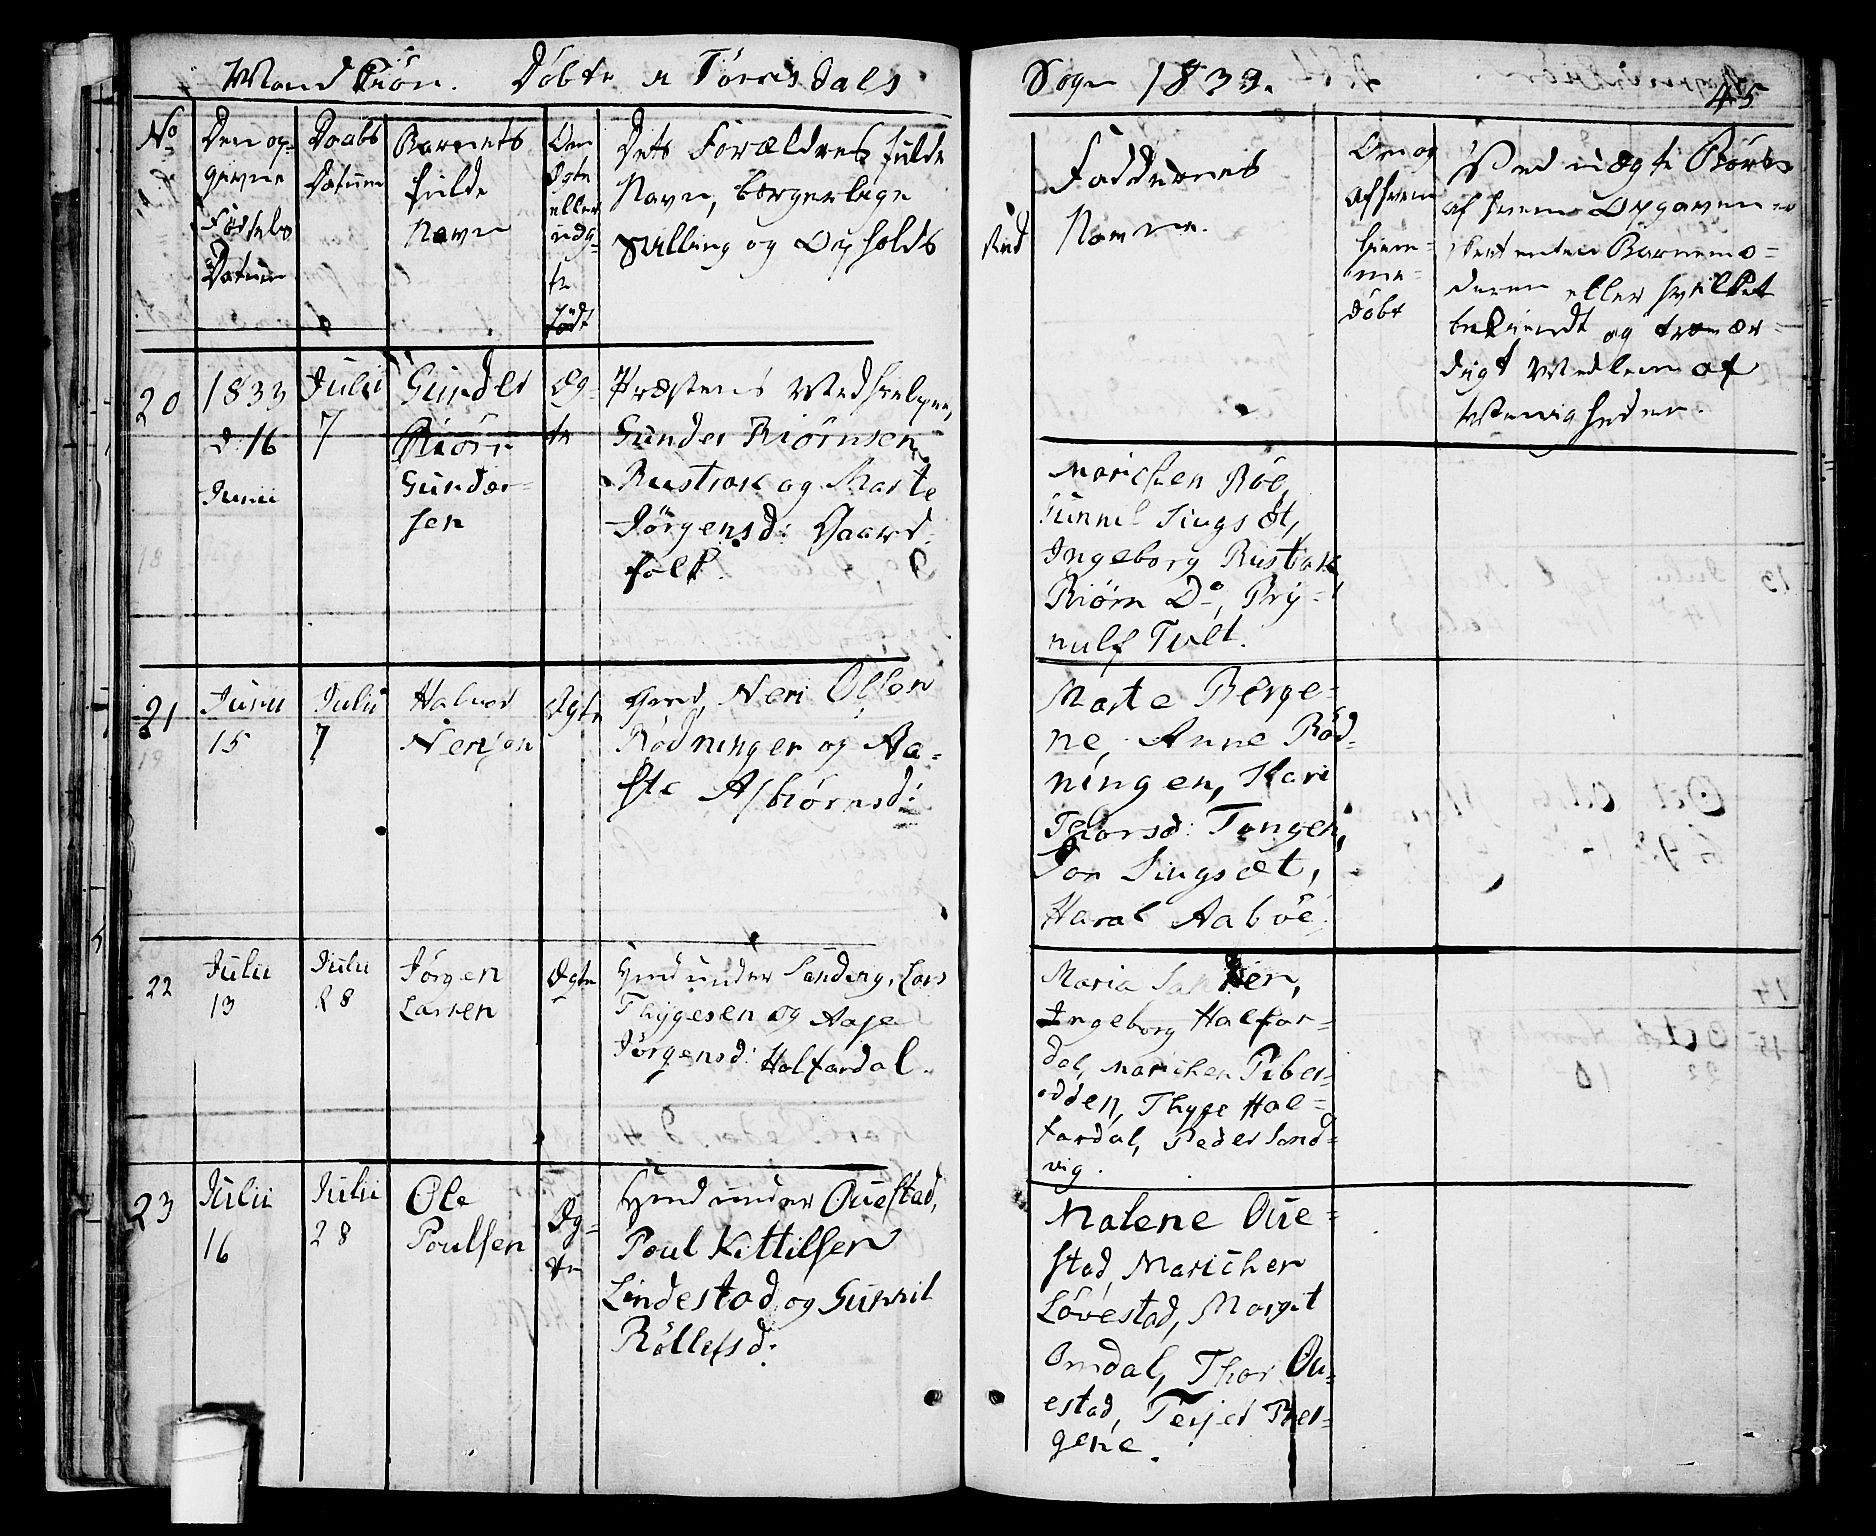 Mandkiön. Döbte i Törrisdals Sogn 1833.
45
No
Den op-
givne
Födsels
Datum
Daabs
Datum
Barnets
fulde
Navn
Om
Ægte
eller
uæg-
te
födt
Dets Forældres fulde
Navn, borgerlige
Stilling og Opholds
Sted
Faddernes
Navne.
Om og
af hvem
hiem-
me-
döbt
Ved uægte Börn
af hvem Opgaven er
skeet enten Barnemo-
deren eller hvilket
bekiendt og troevær-
digt Medlem af
Menigheden.
20
1833
d. 16
Junii
Julii
7
Gunder
Biörn
Gunder-
sen
Æg-
te
Præstens Medhielper,
Gunder Biörnsen
Rustvok og Marte
Jörgensd: Gaard-
folk.
Marichen Böe,
Gunnil Siugsæt,
Ingeborg Rustvok
Biörn Do, Bry-
nulf Tvet.
21
Junii
15
Julii
7
Halvor
Nerison
Ægte
Gmd, Neri Olsen
Rödninger og Aa-
ste Asbiörnsd:
Marte Berge-
ne, Anne Röd-
ningen, Kari
Thorsd: Tangen,
Tor Siugsæt,
Haral Aaböe.
22
Julii
13
Julii
28
Jörgen
Larsen
Ægte
Hmd under Sandvig, Lars
Thygesen og Aase
Jörgensd: Halfardal.
Maria
Ingeborg Halfar-
dal, Marichen Peber-
odden, Thyge Hal-
fardal, Peder Sand-
vig.
23
Julii
16
Julii
28
Ole
Poulsen
Æg-
te
Hmd under Ouestad,
Poul Kittilsen
Lindestad og Gunnil
Röllefsd:
Malene Oue-
stad, Marichen
Lövestad, Margit
Omdal, Thor Ou-
estad, Terjer Ber-
gene.